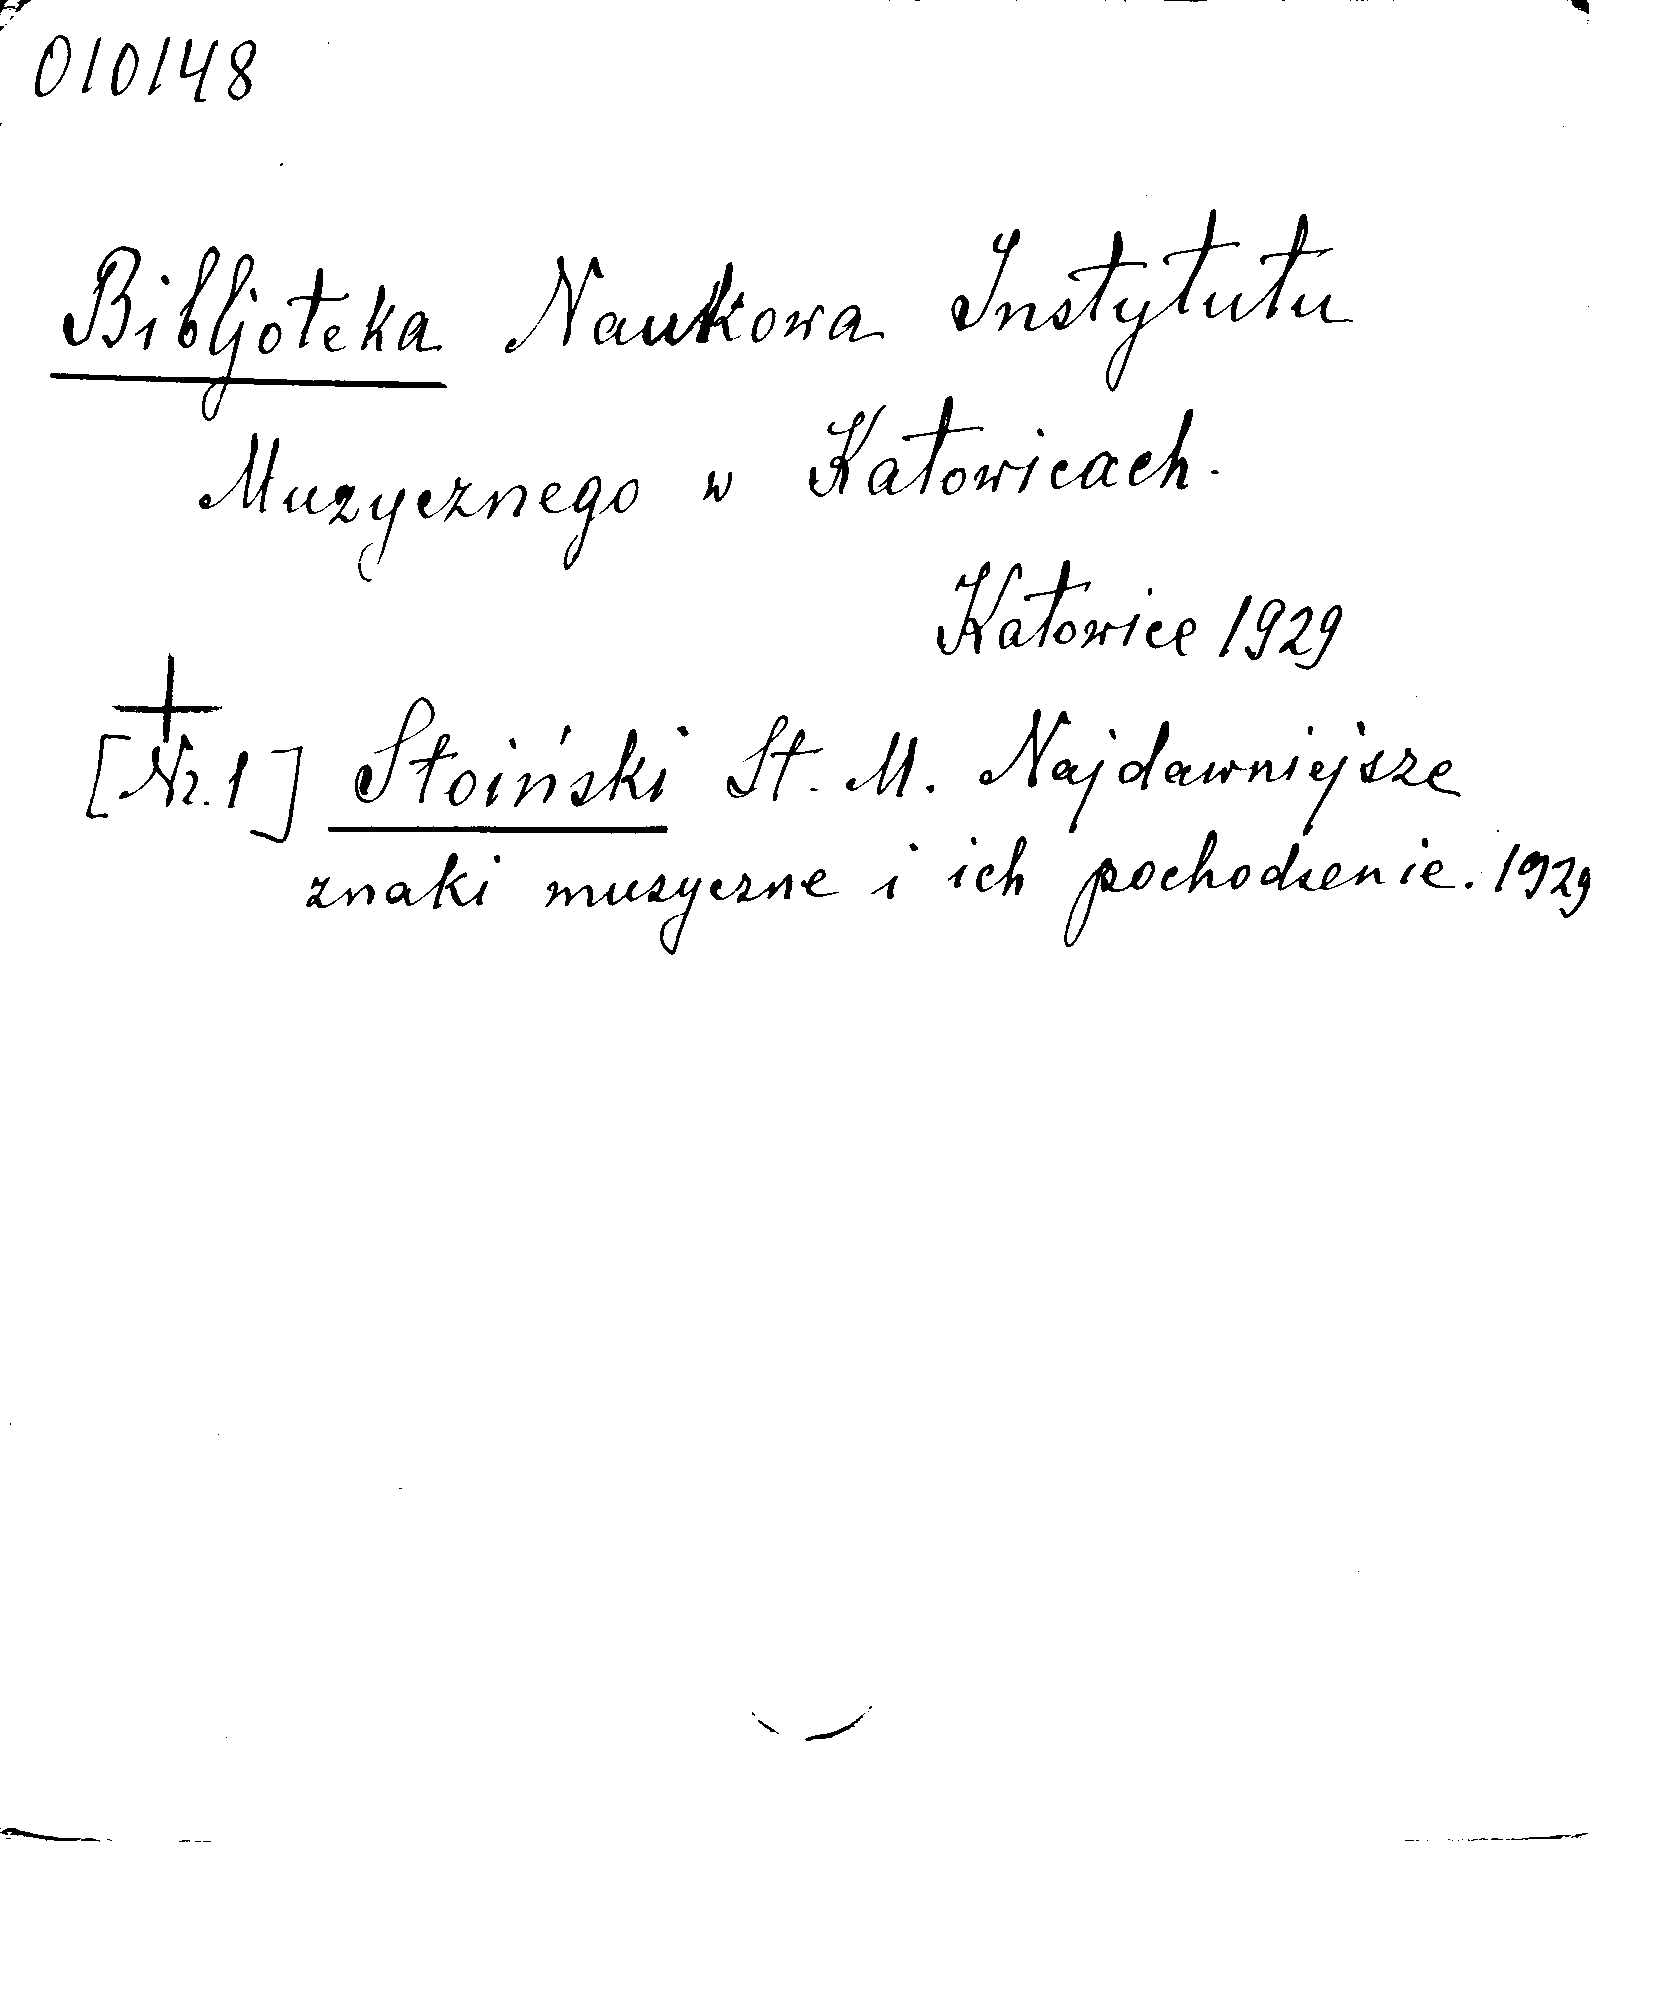 010148
Bibljoteka Naukowa Instytutu
Muzycznego w Katowicach.
Katowice 1929
+
[Nr. 1] Stoiński St. M. Najdawniejsze
znaki muzyczne i ich pochodzenie. 1929